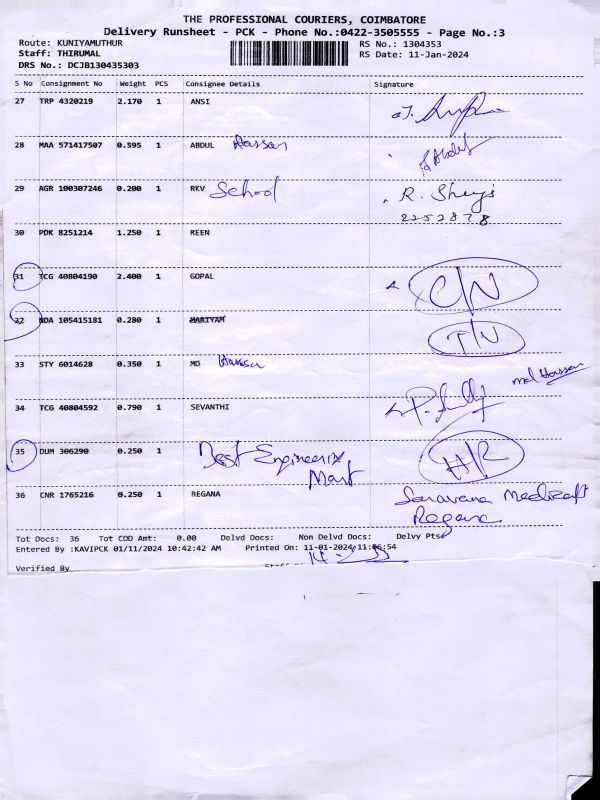 THE PROFESSIONAL COURIERS, COIMBATORE
Delivery Runsheet - PCK - Phone No.:0422-3505555 - Page No.:3
Route: KUNIYAMUTHUR RS No.: 1304353
Staff: THIRUMAL RS Date: 11-Jan-2024
DRS No.: DCJB130435303
S No Consignment No Weight PCS Consignee Details Signature
27 TRP 4320219 2.170 1 ANSI
28 MAA 571417507 0.595 1 ABDUL Hassan
29 AGR 100307246 0.200 1 RKV School R.
2252878
30 PDK 8251214 1.250 1 REEN
31 TCG 40804190 2.400 1 GOPAL C/N
32 NDA 105415181 0.280 1 MARIYAM T/N
33 STY 6014628 0.350 1 MD Hassan md Hassan
34 TCG 40804592 0.790 1 SEVANTHI
35 DUM 306290 0.250 1 Best Engineerix H/R
Mart
36 CNR 1765216 0.250 1 REGANA Saravana
Regana
Tot Docs: 36 Tot COD Amt: 0.00 Delvd Docs: Non Delvd Docs: Delvy Pts
Entered By :KAVIPCK 01/11/2024 10:42:42 AM Printed On: 11-01-2024 11:06:54
Verified By